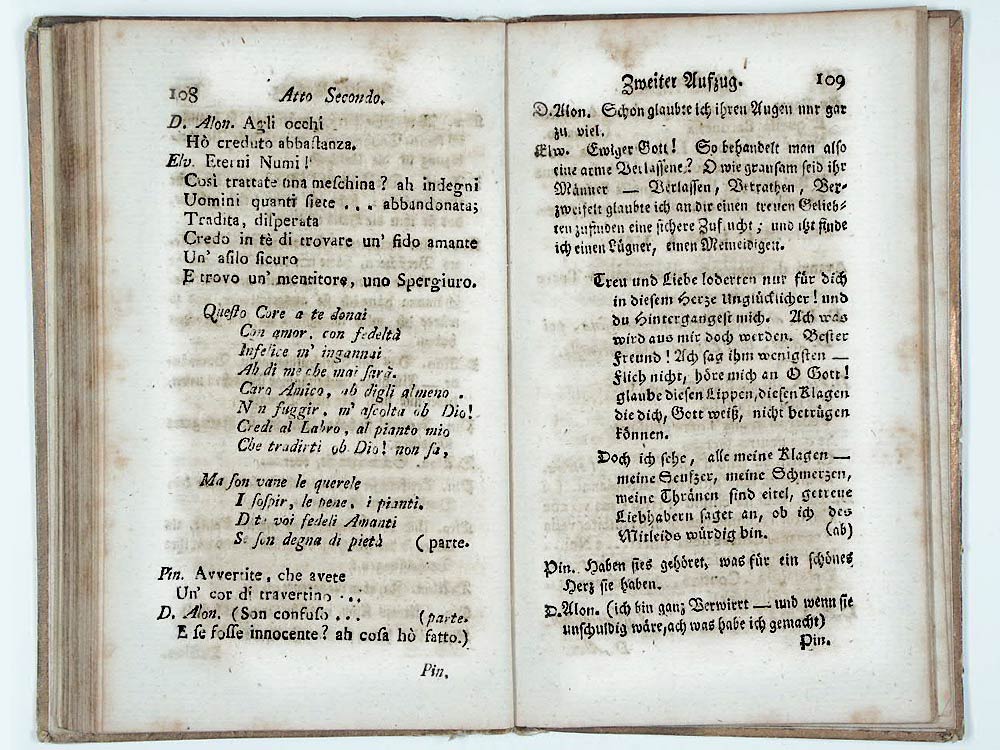 108 Atto Secondo.
D. Alon. Agli occhi
Hò creduto abbaſtanza.
Elv. Eterni Numi!
Così trattate una meſchina? ah indegni
Uomini quanti ſiete ... abbandonata;
Tradita, diſperata
Credo in tè di trovare un' fido amante
Un' aſilo sicuro
E trovo un' mentitore, uno Spergiuro.
Queſto Core a te donai
Con amor, con fedeltà
Infelice m' ingannai
Ah di me che mai ſarà.
Caro Amico, ah digli almeno.
Non fuggir, m' aſcolta oh Dio!
Credi al Labro, al pianto mio
Che tradirti oh Dio! non ſa,
Ma ſon vane le querele
I ſoſpir, le pene, i pianti.
Dite voi fedeli Amanti
Se ſon degna di pietà (parte.
Pin. Avvertite, che avete
Un' cor di travertino ...
D. Alon. (Son confuſo ... (parte.
E ſe foſſe innocente? ah coſa hò fatto.)
Pin.
Zweiter Aufzug. 109
D. Alon. Schon glaubte ich ihren Augen nur gar
zu viel.
Elw. Ewiger Gott! So behandelt man alſo
eine arme Verlaſſene? O wie grauſam ſeid ihr
Männer — Verlaſſen, Verrathen, Ver-
zweifelt glaubte ich an dir einen treuen Gelieb-
ten zufinden eine ſichere Zuflucht; und itzt finde
ich einen Lügner, einen Meineidigen.
Treu und Liebe loderten nur für dich
in dieſem Herze Unglücklicher! und
du Hintergangeſt mich. Ach was
wird aus mir doch werden. Beſter
Freund! Ach ſag ihm wenigſten —
Flich nicht, höre mich an O Gott!
glaube dieſen Lippen, dieſen Klagen
die dich, Gott weiß, nicht betrügen
können.
Doch ich ſehe, alle meine Klagen —
meine Seufzer, meine Schmerzen,
meine Thränen ſind eitel, getreue
Liebhabern ſaget an, ob ich des
Mitleids würdig bin. (ab)
Pin. Haben ſies gehöret, was für ein ſchönes
Herz ſie haben.
D. Alon. (ich bin ganz Verwiert — und wenn ſie
unſchuldig wäre, ach was habe ich gemacht)
Pin.